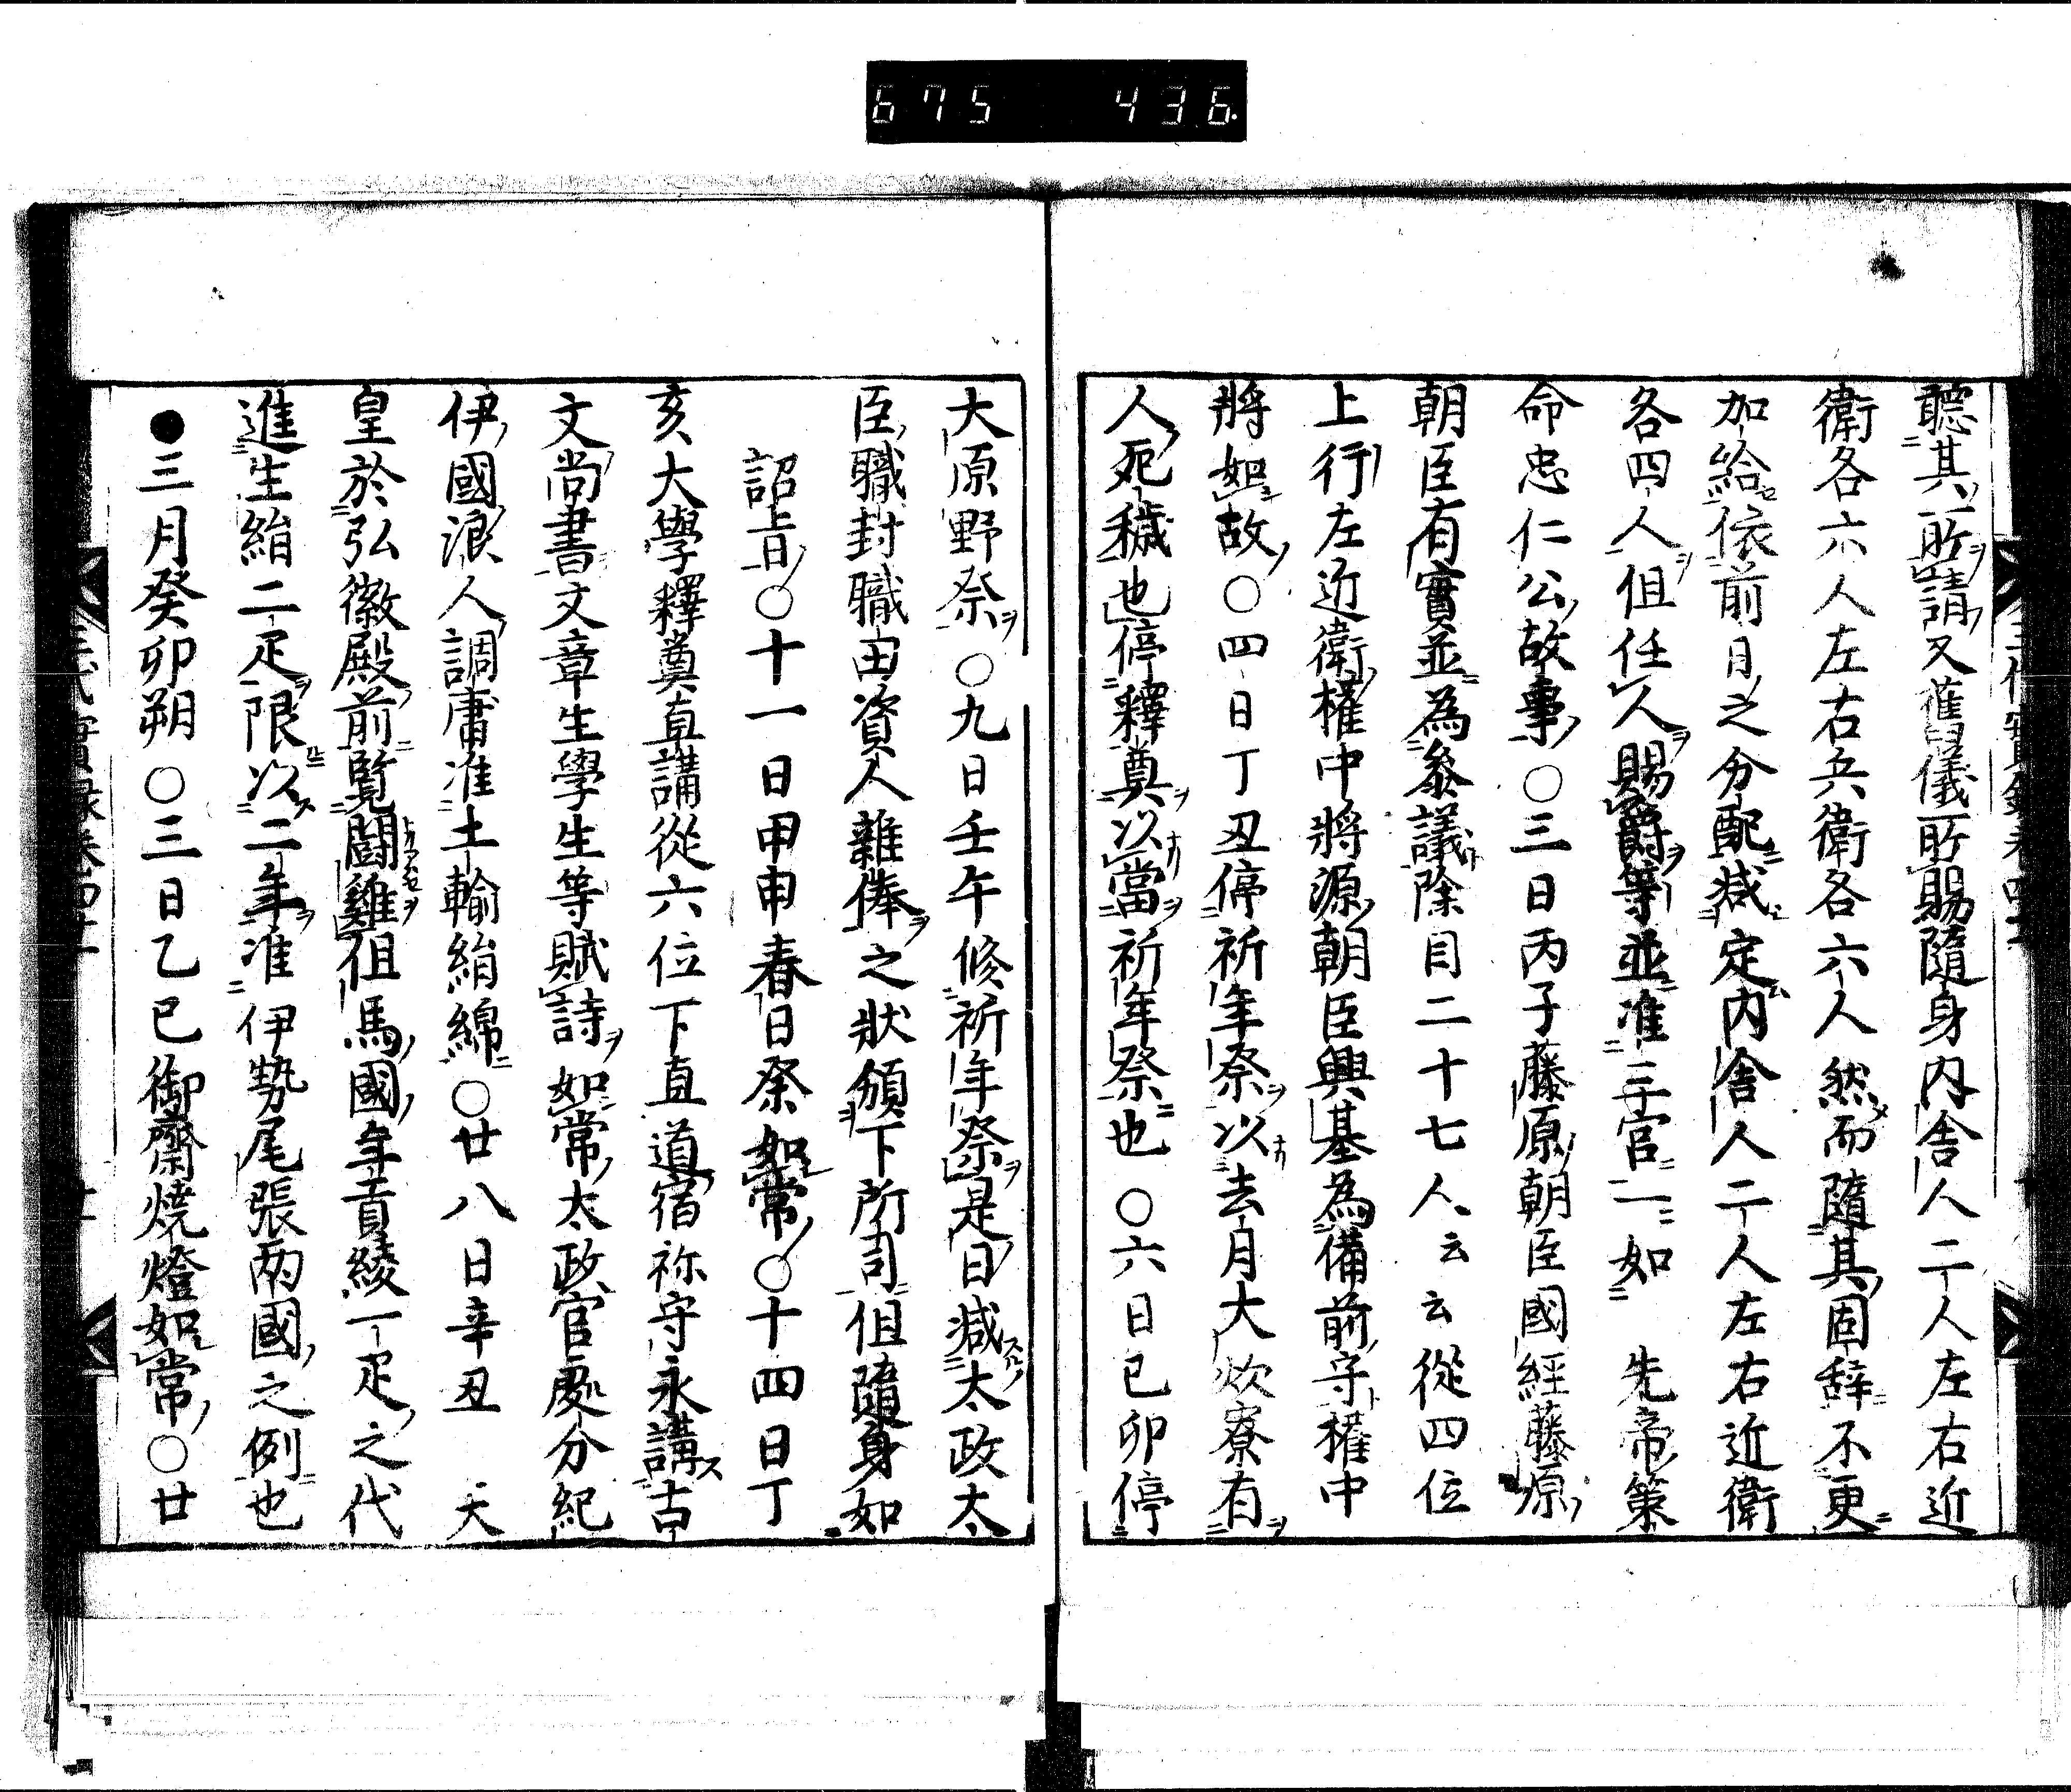 675 436
聽其所請又舊儀所賜隨身内舎人二人左右近
衛各六人左右兵衛各六人然而隨其固辞不更
加給依前日之分配減定内舎人二人左右近衛
各四人但任人賜爵等並准三宮一如　先帝策
命忠仁公故事○三日丙子藤原朝臣國經藤原
朝臣有實並為參議除目二十七人云云從四位
上行左近衛權中將源朝臣興基為備前守權中
將如故○四日丁丑停祈年祭以去月大炊寮有
人死穢也停釋奠以當祈年祭也○六日己卯停
大原野祭○九日壬午修祈年祭是日減太政大
臣職封職田資人雜俸之狀頒下所司但隨身如
詔旨○十一日甲申春日祭如常○十四日丁
亥大學釋奠直講從六位下直道宿祢守永講古
文尚書文章生學生等賦詩如常太政官處分紀
伊國浪人調庸准土輸絹綿○廿八日辛丑　天
皇於弘徽殿前覽鬪雞但馬國年貢綾一疋之代
進生絹二疋限以二年准伊勢尾張兩國之例也
●三月癸卯朔○三日乙巳御齋燒燈如常○廿